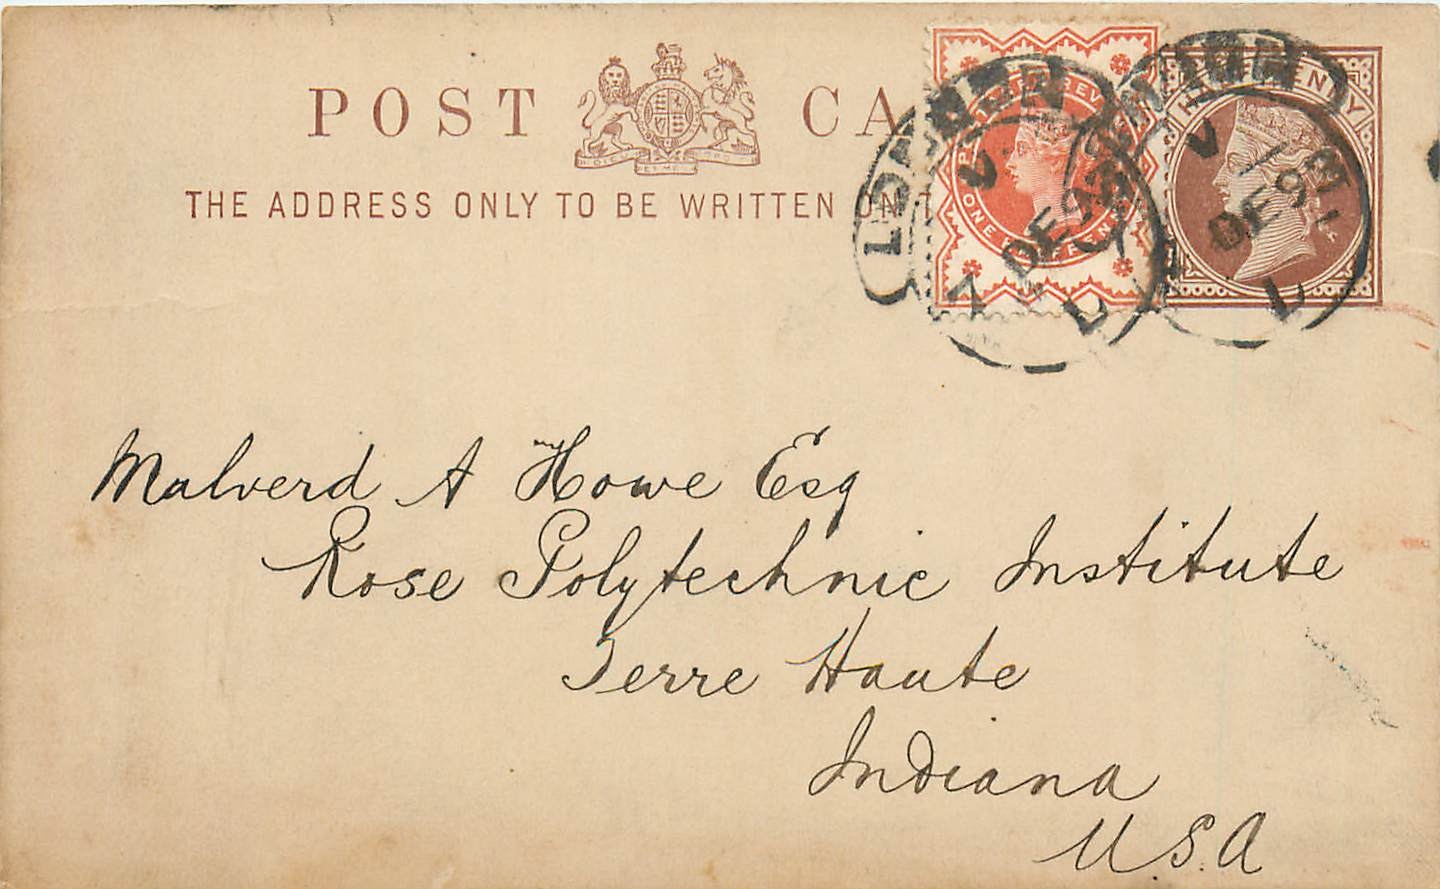 POST CA
THE ADDRESS ONLY TO BE WRITTEN ON T
HALFPENNY
LONDON
V
7
DE
L
V
DE 91
L
Malverd A Howe Esq
Rose Polytechnic Institute
Terre Haute
Indiana
U.S.A